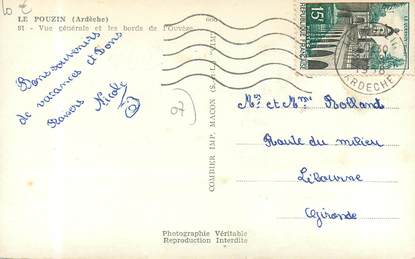 10 €
LE POUZIN (Ardèche)
91 - Vue générale et les bords de l'Ouvèze
Bons souvenirs
de vacances et Bons
Baisers Nicole
97
COMBIER IMP. MACON (S.-et-L.)
REPUBLIQUE FRANÇAISE
15F
ARDECHE
Mr et Mme Rolland
Route du milieu
Libourne
Gironde
Photographie Véritable
Reproduction Interdite